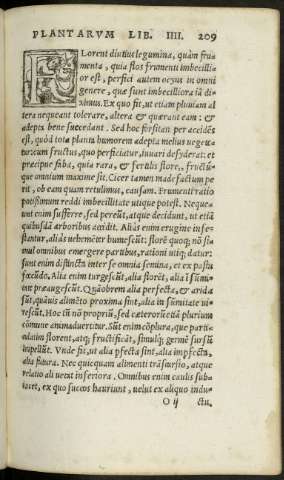 PLANTARVM LIB. IIII. 209
FLorent diutius legumina, quàm fru
menta, quia flos frumenti imbecilli
or est, perfici autem ocyus in omni
genere, quæ sunt imbecilliora iã di
ximus. Ex quo fit, ut etiam pluuiam al
tera nequeant tolerare, altera & quærant eam: &
adepta bene succedant. Sed hoc forsitan per accidẽs
est, quòd tota planta humorem adepta melius uegeta
tioram fructus, quo perficiatur, iuuari desyderat: et
præcipue faba, quia rara, & fertilis flore, fructu�
que omnium maxime sit. Cicer tamen madefactum pe
rit, ob eam quam retulimus, causam. Frumenti ratio
potissimum reddi imbecillitate utique potest. Neque
unt enim sufferre, sed pereũt, atque decidunt, ut etiã
quibusdã arboribus accidit. Aliàs enim erugine infe
stantur, aliàs uehemẽter humescũt: florẽ quoq; nõ si
mul omnibus emergere partibus, rationi utiq; datur:
sunt enim distinctæ inter se omnia semina, et ex pastu
fœcũdo. Alia enim turgescũt, alia florẽt, alia ĩ sum
mt præaugescũt. Quãobrem alia perfecta, & arida
sũt, quæuis alimẽto proxima sint, alia in sũmitate ui
rescũt. Hoc tũ nõ propriũ, sed cæterorũ etiã plurium
cõmune animaduertitur. Sũt enim cõplura, que parti
culatim florent, atq; fructificãt, simulq; germẽ sursũ
impellũt. Vnde fit, ut alia pfecta sint, alia imp̃fecta,
alia futura. Nec quicquam alimenti trãsursio, atque
relatio ali uetat inferiora. Omnibus enim caulis suba
iacet, ex quo succos hauriunt, uelut ex aliquo indu-
O ij ctu,